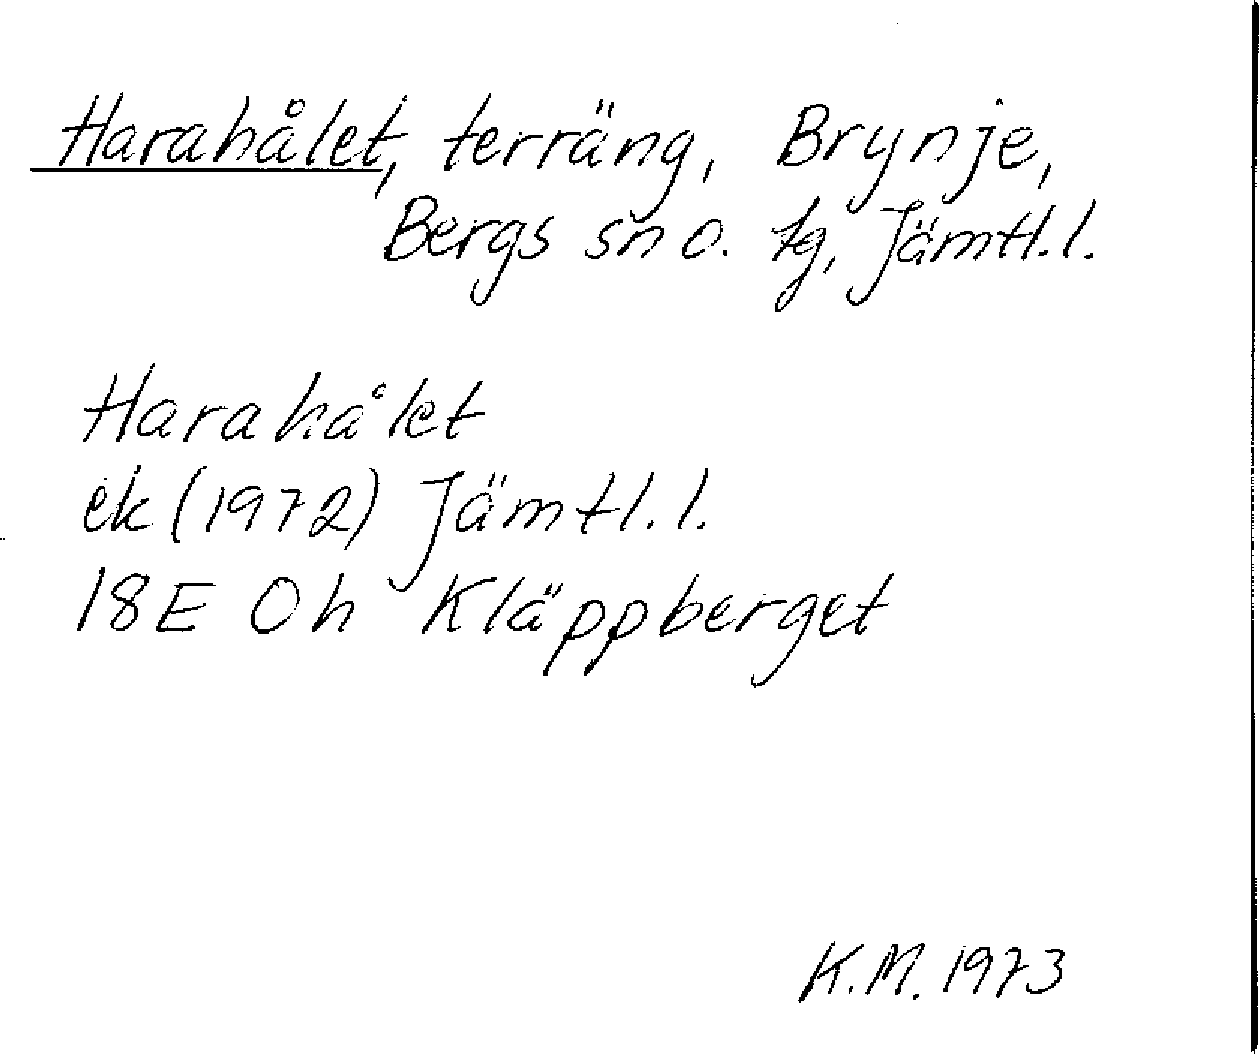 Harahålet, terräng, Brynje,
Bergs sn o. tg, Jämtl. l.
Harahålet
ek (1972) Jämtl. l.
18E 0h Kläppberget
K.M. 1973